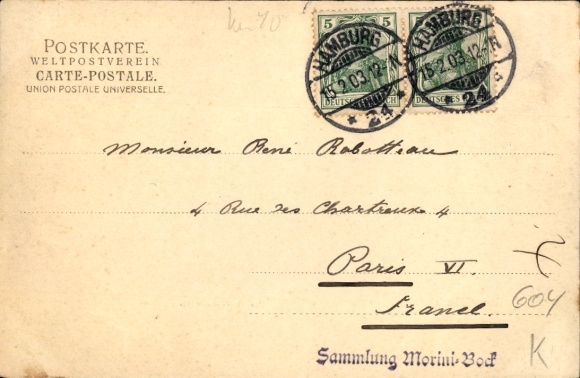 POSTKARTE.
WELTPOSTVEREIN
CARTE-POSTALE.
UNION POSTALE UNIVERSELLE.
5 5 5
HAMBURG HAMBURG
15.2.03.12-1N 15.2.03.12-1N
DEUTSCHES REICH DEUTSCHES
* 24 24
Monsieur René Robotteau
4 Rue des Chartreux 4
Paris VI.
France.
604
K
Sammlung Morini-Bock